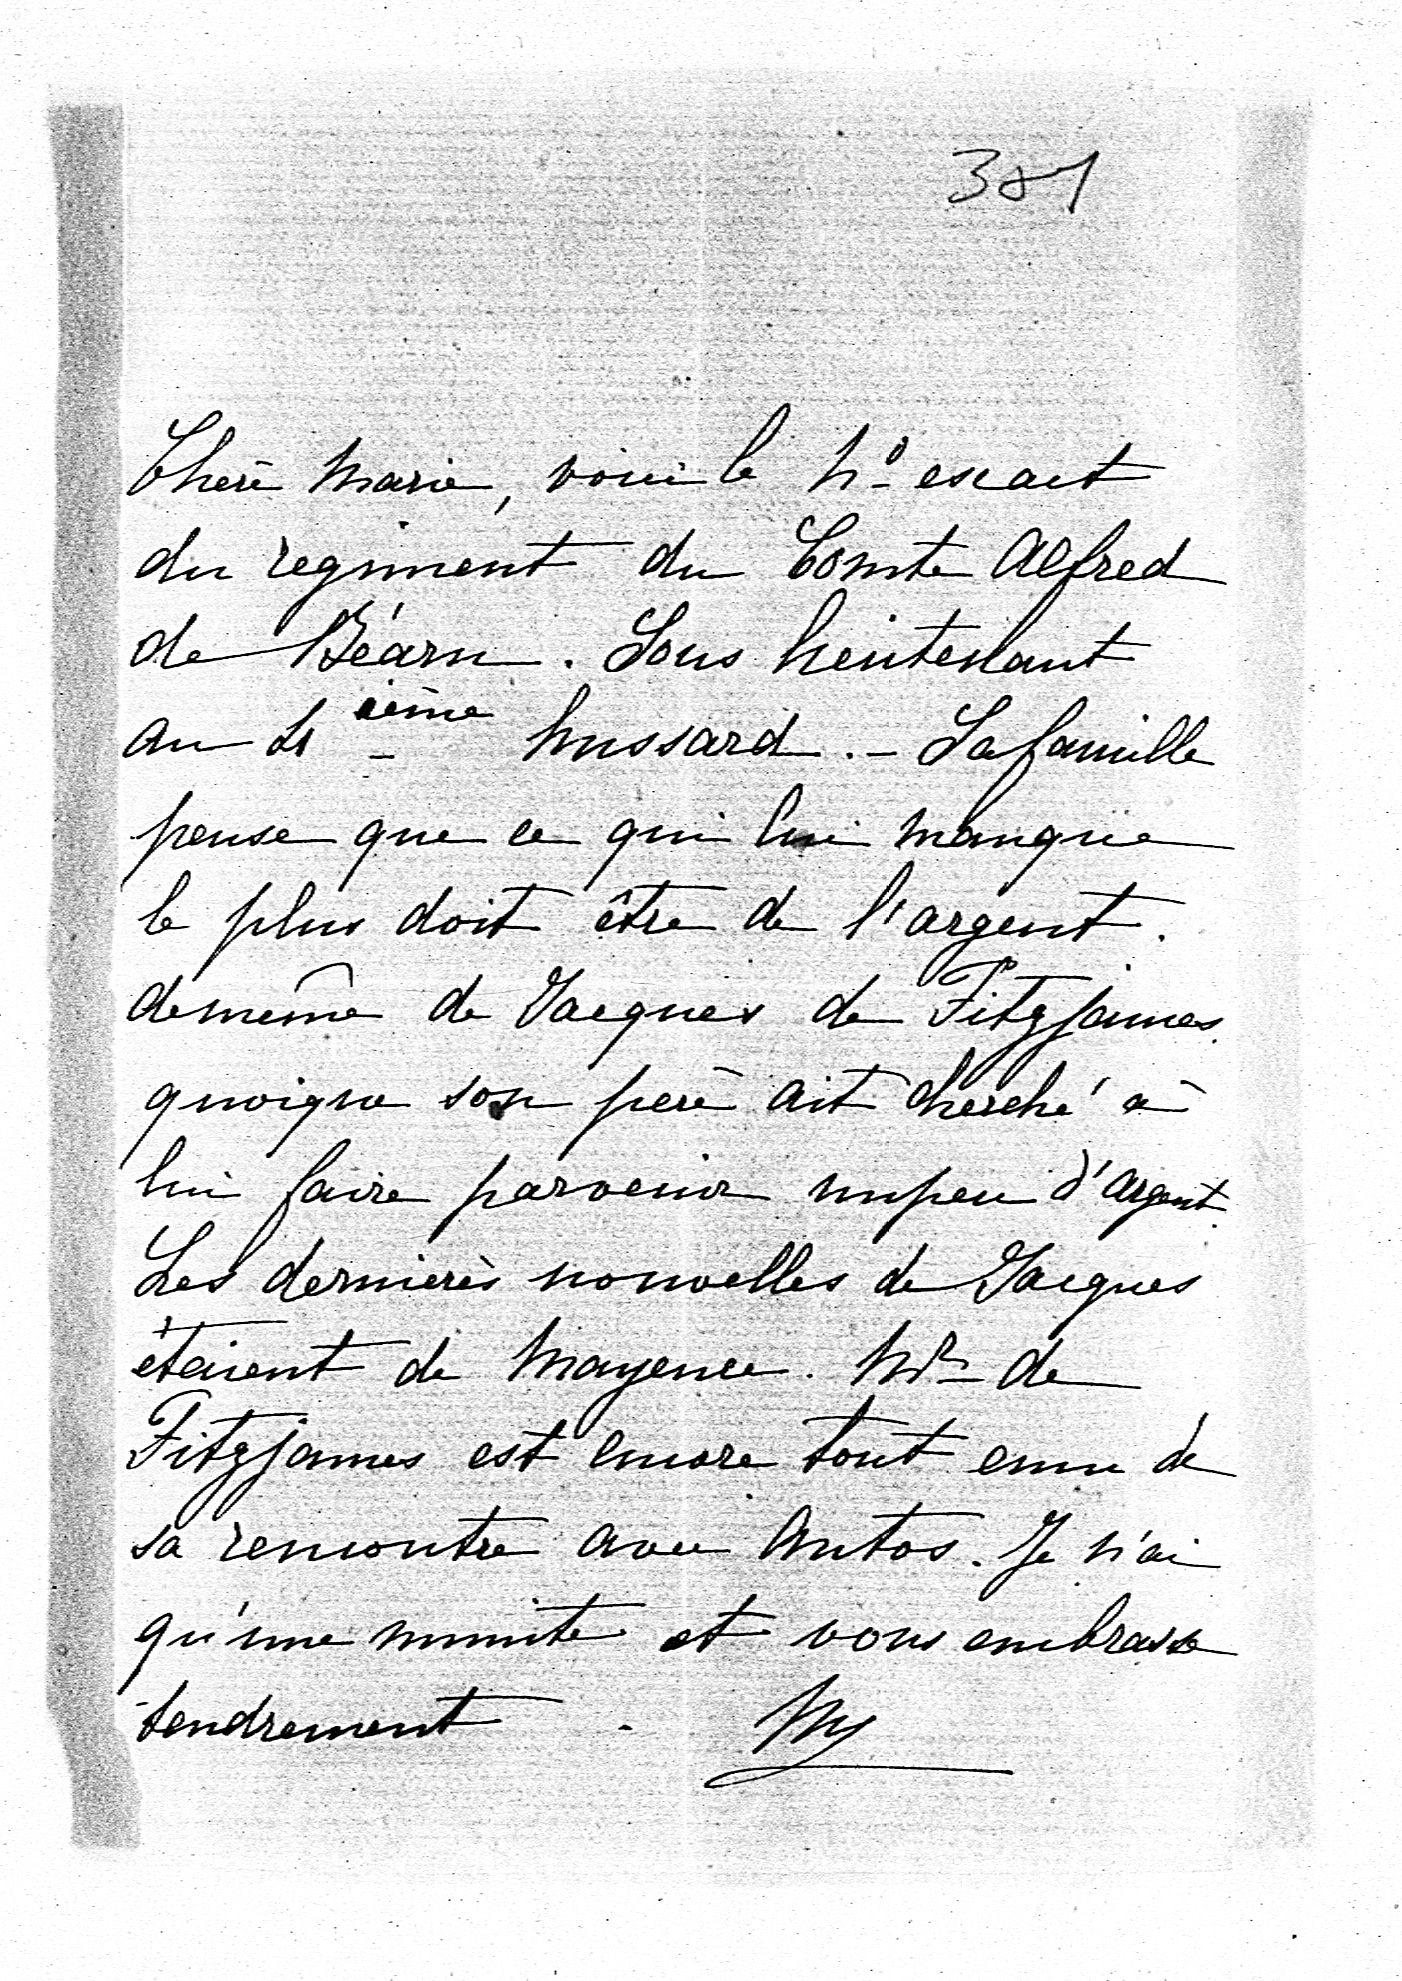 381
Chère Marie, voici le No exact
du regiment du Comte Alfred
de Béarn. Sous lieutenant
au 4ième hussard. - Sa famille
pense que ce qui lui manque
le plus doit être de l'argent.
demême de Jacques de Fitzjames
quoique son père ait cherché à
lui faire parvenir unpeu d'argent.
Les dernières nouvelles de Jacques
étaient de Mayence. Mr de
Fitzjames est encore tout emu de
sa rencontre avec Antos. Je n'ai
qu'une minute et vous embrasse
tendrement.